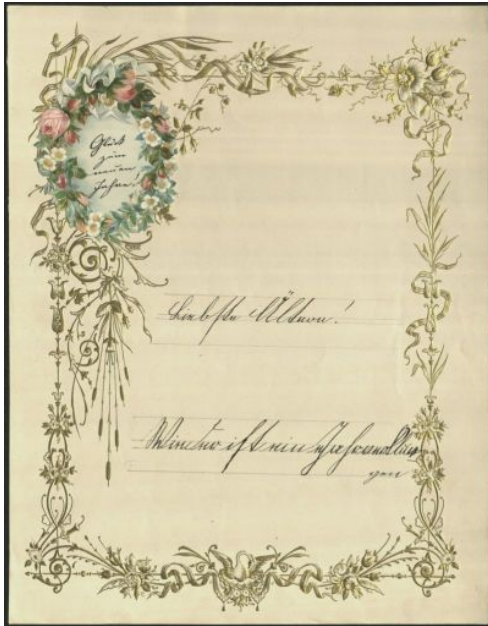 Glück
zum
neuen
Jahre.
Liebste Ältern!
Wieder ist ein Jahr
gen